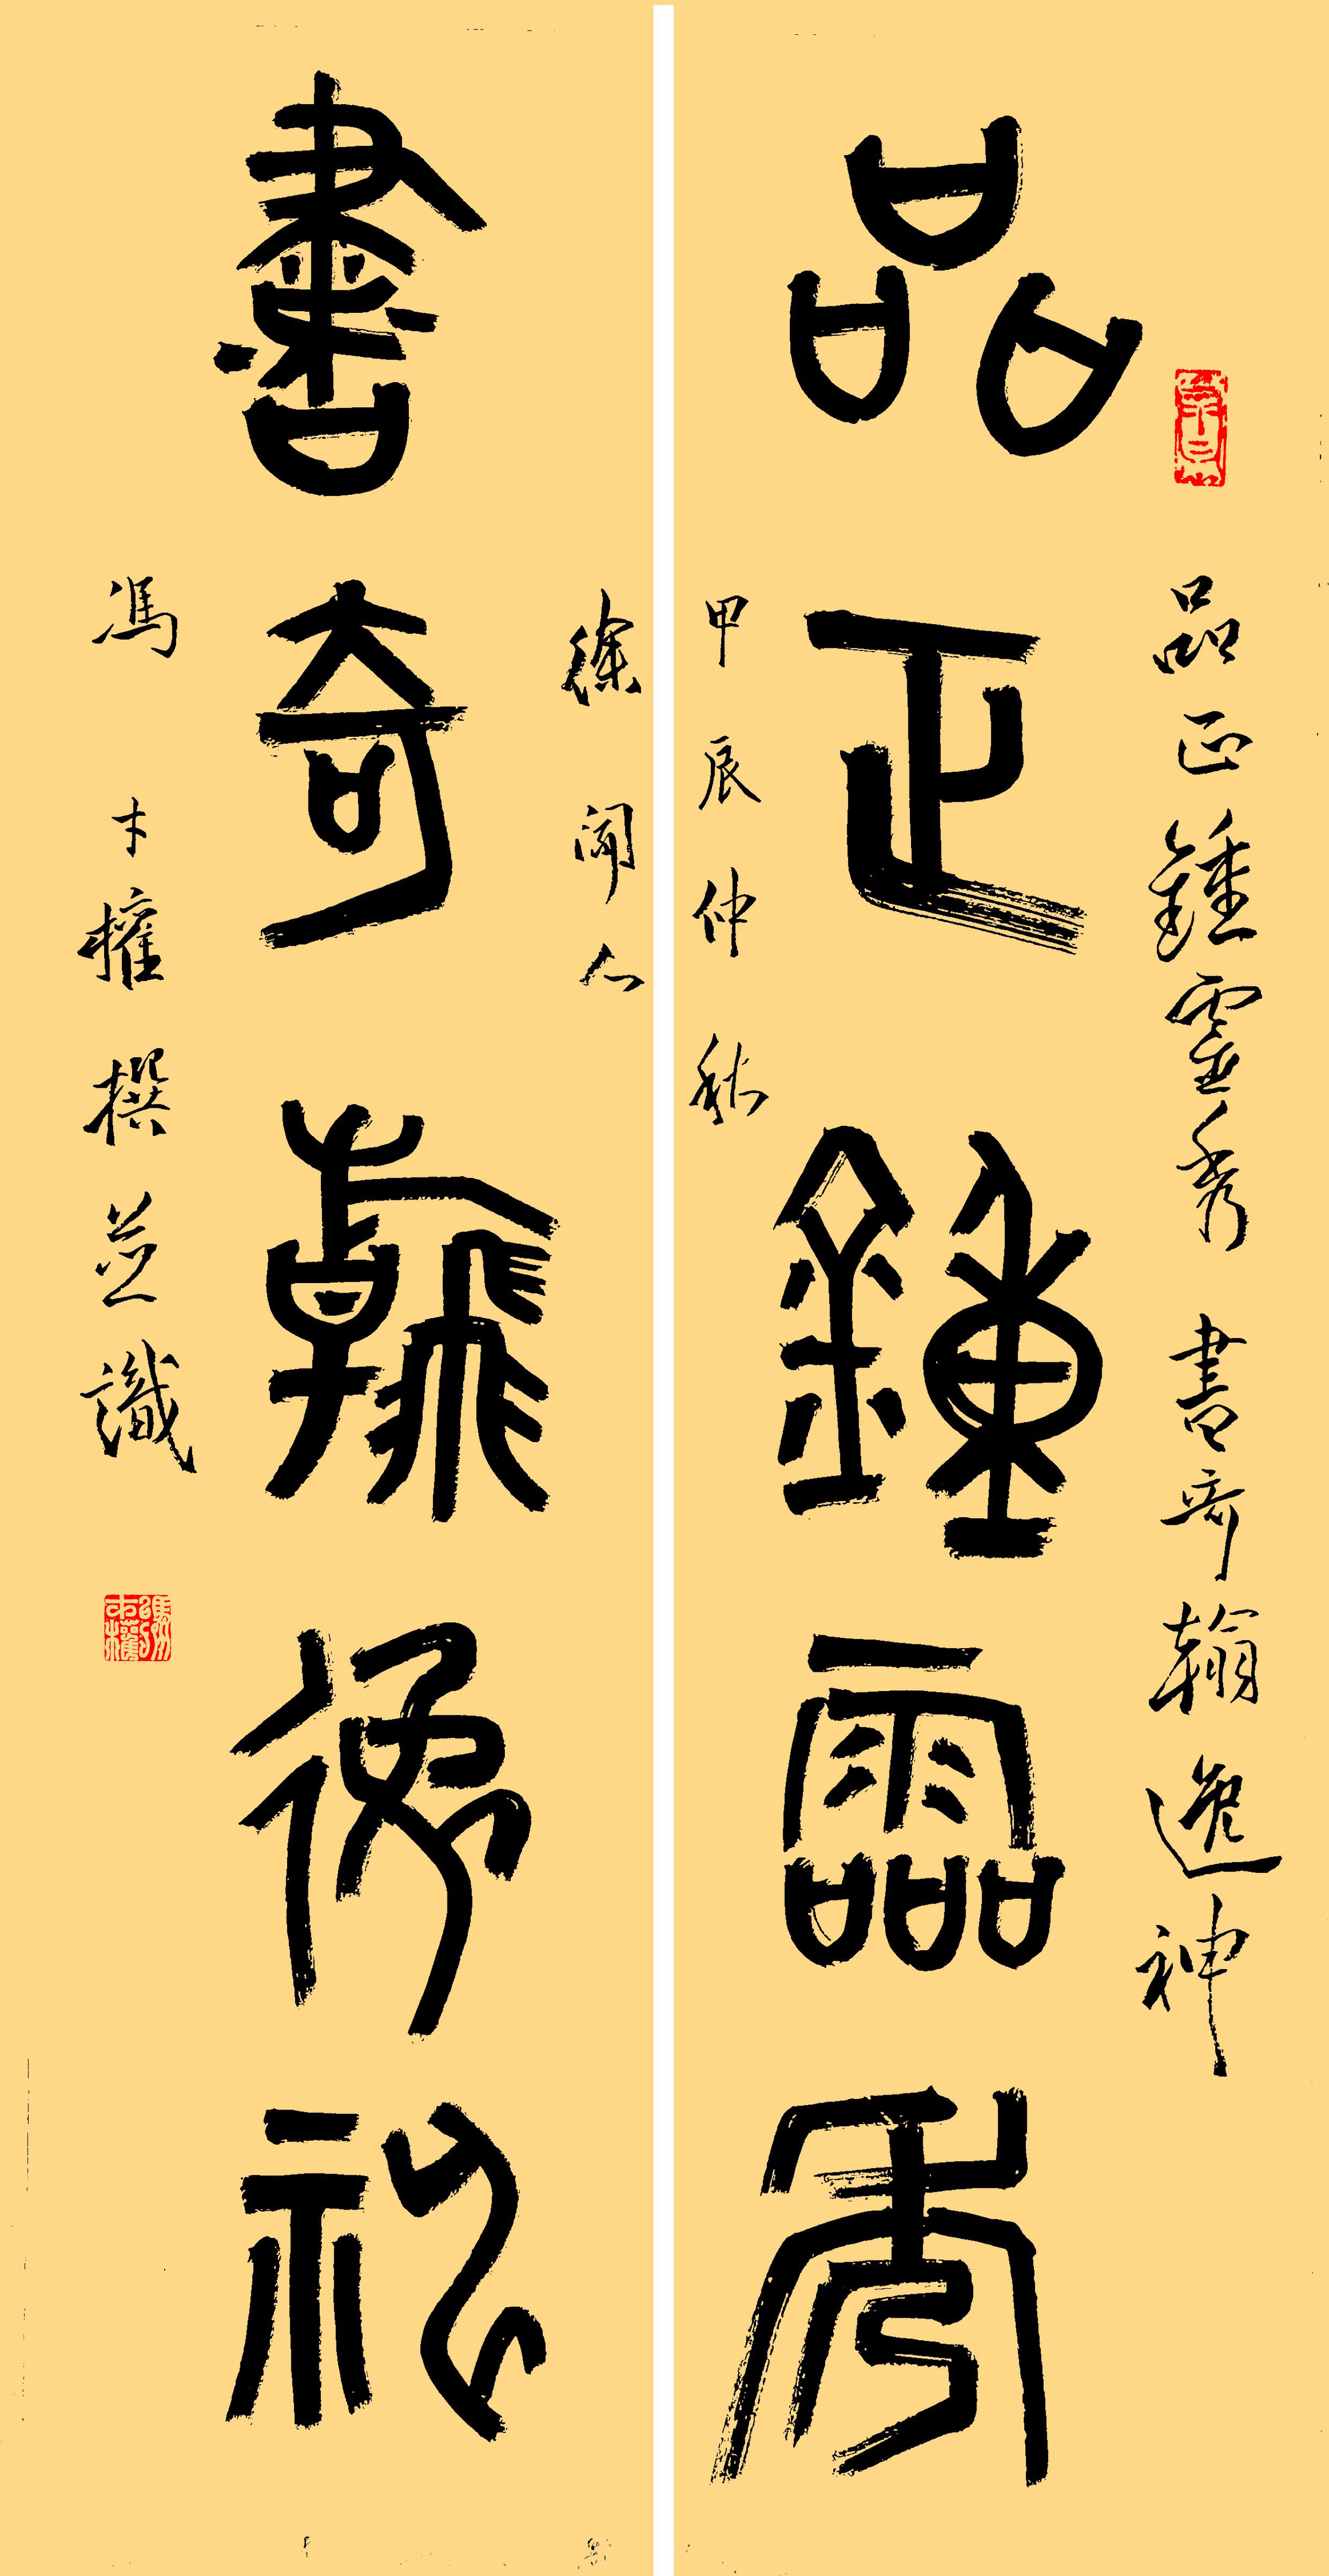 品正鍾靈秀
品正鍾靈秀 書奇翰逸神
甲辰仲秋
書奇翰逸神
徐聞人
馮才權撰並識